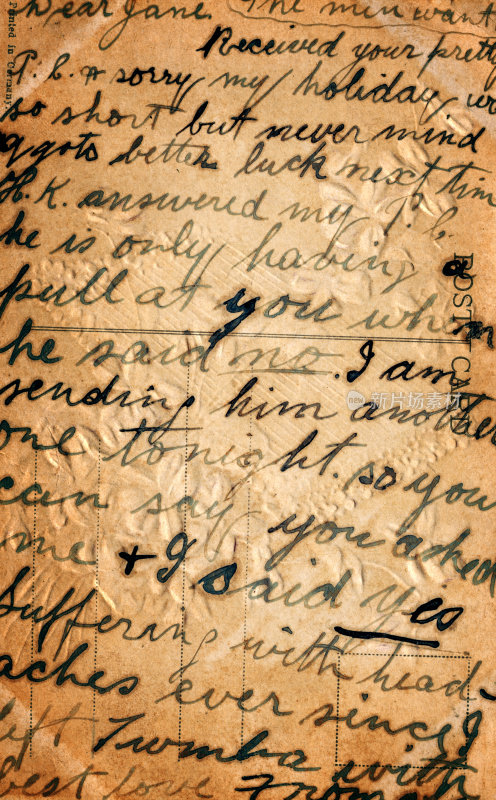 Dear Jane. The men want
Received your pretty
P. C. & sorry my holiday w
so short but never mind
better luck next tim
H. K. answered my P. C.
he is only having a
pull at you when
he said no. I am
sending him another
one tonight. so you
can say you asked
me + I said yes
Suffering with head-
aches ever since I
left Tumba with
best love From
Printed in Germany.
POST CARD
新片素材